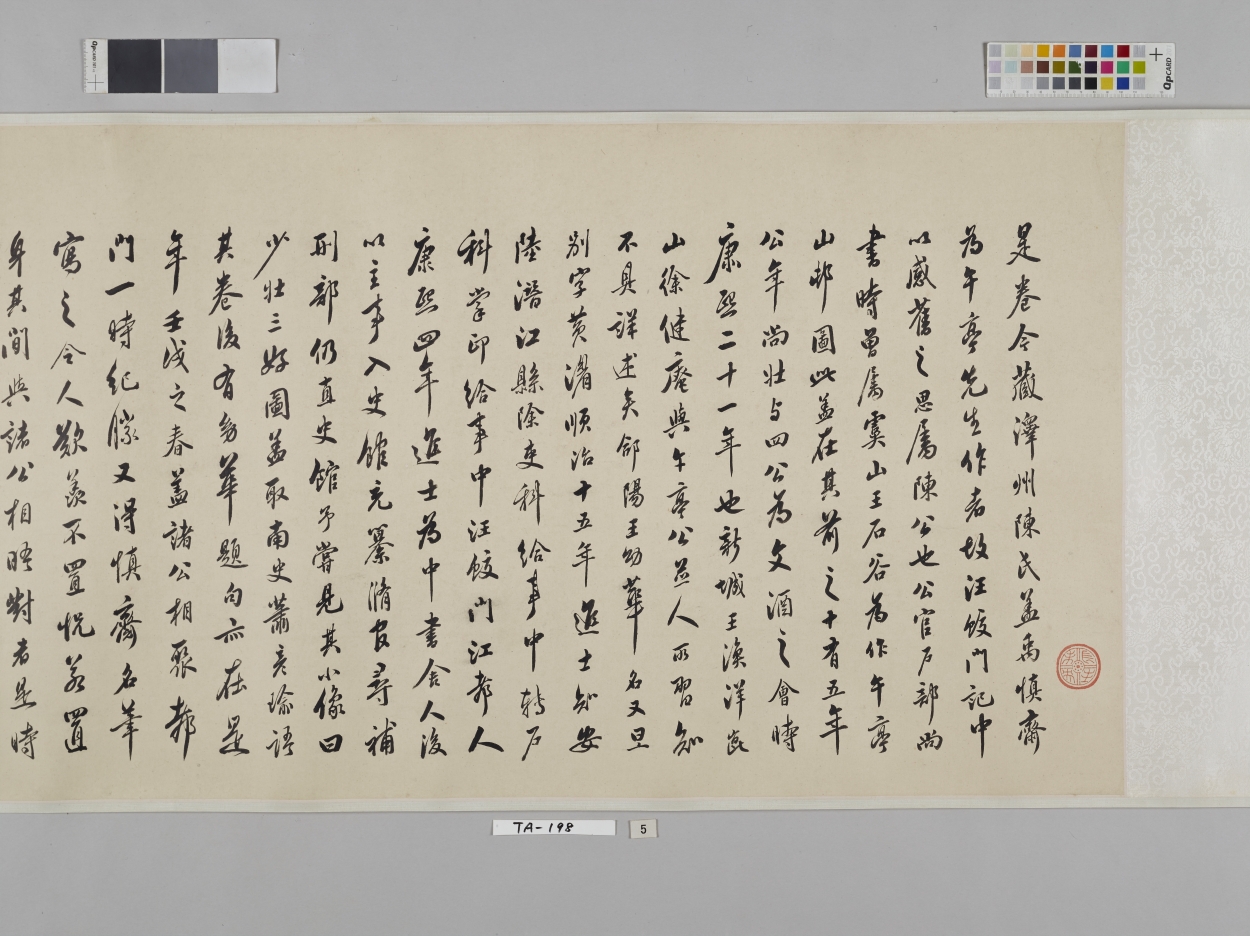 是卷今藏澤州陳氏蓋禹慎齋
為午亭先生作者故汪蛟門記中
以感舊之思屬陳公也公官戶部尚
書時曾屬虞山王石谷為作午亭
山邨圖此蓋在其前之十有五年
公年尚壯與四公為文酒之會時
康熙二十一年也新城王漁洋崑
山徐健庵與午亭公並人所習知
不具詳述矣郃陽王幼華名又旦
別字黃湄順治十五年進士知安
陸潛江縣除吏科給事中轉戶
科掌印給事中汪蛟門江都人
康熙四年進士為中書舍人後
以主事入史館充纂脩官尋補
刑部仍直史館予嘗見其小像曰
少壯三好圖蓋取南史蕭彥瑜語
其卷後有幼華題句亦在是
年壬戌之春蓋諸公相聚都
門一時紀勝又得慎齋名筆
寫之令人歎羨不置怳若置
身其間與諸公相晤對者是時
TA-198
5
QPCARD